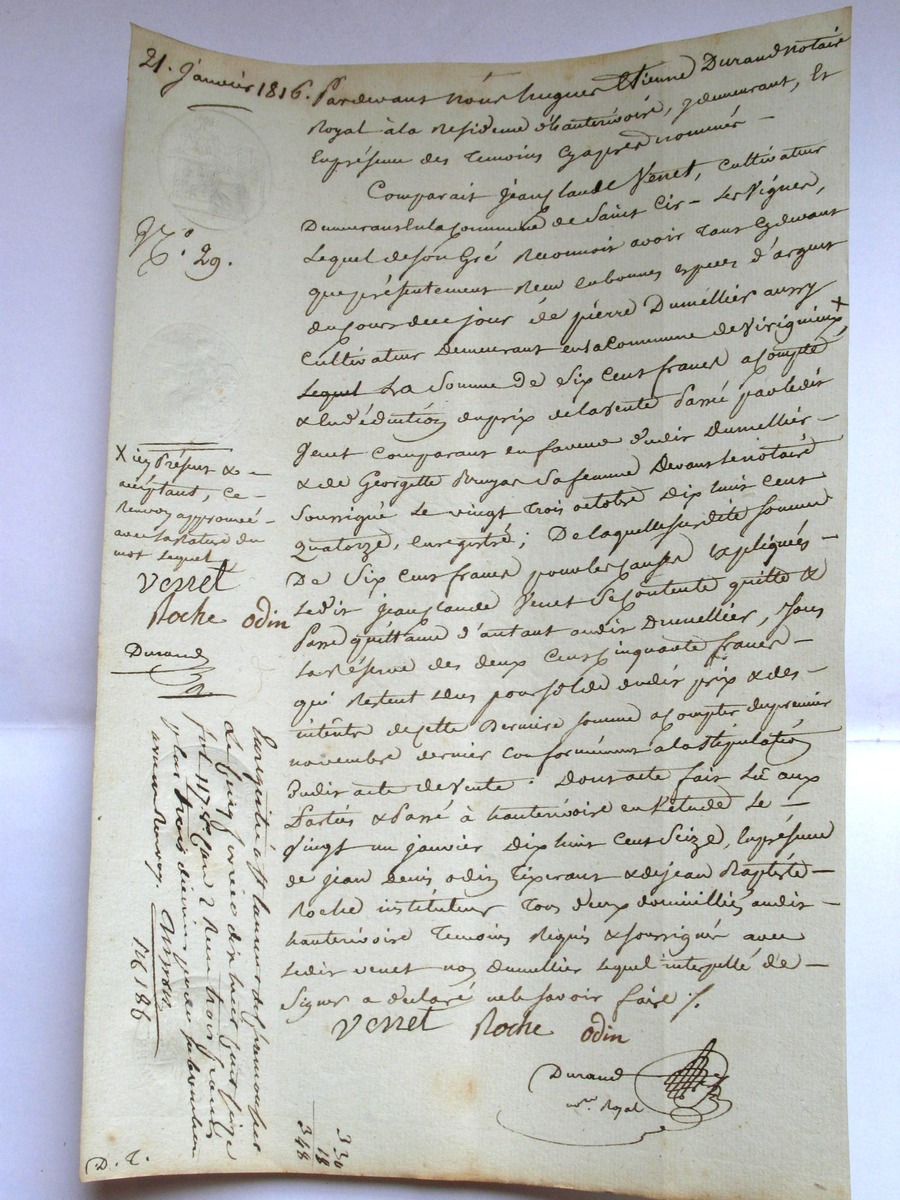 21. Janvier 1816. Pardevant Nous hugues Etienne Durand notaire
Royal à la Residence d'hauterivoire, y demeurant, Et
En présence des Temoins Cy après nommés —
Comparait Jean Claude Venet, Cultivateur
Demeurant En la Commune de Saint Cir - Les Vignes,
Lequel de son Gré Reconnoit avoir Tant Cy devant
que présentement Recu en bonnes espèces d'argent
du jours de ce jour de pierre Dumellier aussy
Cultivateur Demeurant en la Commune de Virigneux X
Lequel La Somme de Six Cent francs a Compte
& En déduction du prix de la Vente Passé par ledit
Venet Comparant en faveur dudit Dumellier —
& de Georgette Sa femme Devant le notaire
Soussigné Le vingt Trois octobre Dix huit Cent
Quatorze, Enregistré ; De laquelle susdite Somme
De Six Cent francs pour les Causes Expliquées —
Ledit Jean Claude Venet Se Contente quitte &
Passe quittance d'autant audit Dumellier, Sous
La Réserve des deux Cent Cinquante francs —
qui Restent dus pour Solde dudit prix & des —
intérêts de Cette Dernière Somme a Compter du premier
novembre dernier Conformément a la Stipulation
Dudit acte de Vente : Dont acte fait Lu aux
Parties & Passé à hauterivoire en l'étude Le —
Vingt un janvier Dix huit Cent Seize, En présence
de Jean Denis odin Tixerant & de jean Baptiste —
Roche instituteur Tous deux domiciliés audit —
hauterivoire Temoins Requis & soussignés avec
Ledit Venet non Dumellier Lequel interpellé de —
Signer a déclaré ne le Savoir faire /.
Venet Roche odin
Durand
nre Royal
No. 29.
X icy Présent & —
acceptant, Ce —
Renvoy approuvé —
avec la Rature du
mot Lequel
Venet
Roche odin
Durand
Enregistré à St Laurent de Chamousset
Le vingt Janvier dix huit cent seize
fol. 117 Case 2 Recu trois francs
plus trois décimes pour subvention
avec un Renvoy.
116 186
3 30
18
3 48
D. T.